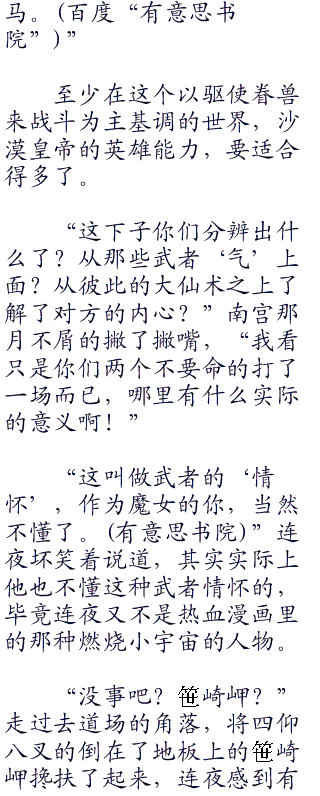 马。(百度“有意思书
院”)”
至少在这个以驱使眷兽
来战斗为主基调的世界，沙
漠皇帝的英雄能力，要适合
得多了。
“这下子你们分辨出什
么了？从那些武者‘气’上
面？从彼此的大仙术之上了
解了对方的内心？”南宫那
月不屑的撇了撇嘴，“我看
只是你们两个不要命的打了
一场而已，哪里有什么实际
的意义啊！”
“这叫做武者的‘情
怀’，作为魔女的你，当然
不懂了。(有意思书院)”连
夜坏笑着说道，其实实际上
他也不懂这种武者情怀的，
毕竟连夜又不是热血漫画里
的那种燃烧小宇宙的人物。
“没事吧？笹崎岬？”
走过去道场的角落，将四仰
八叉的倒在了地板上的笹崎
岬搀扶了起来，连夜感到有